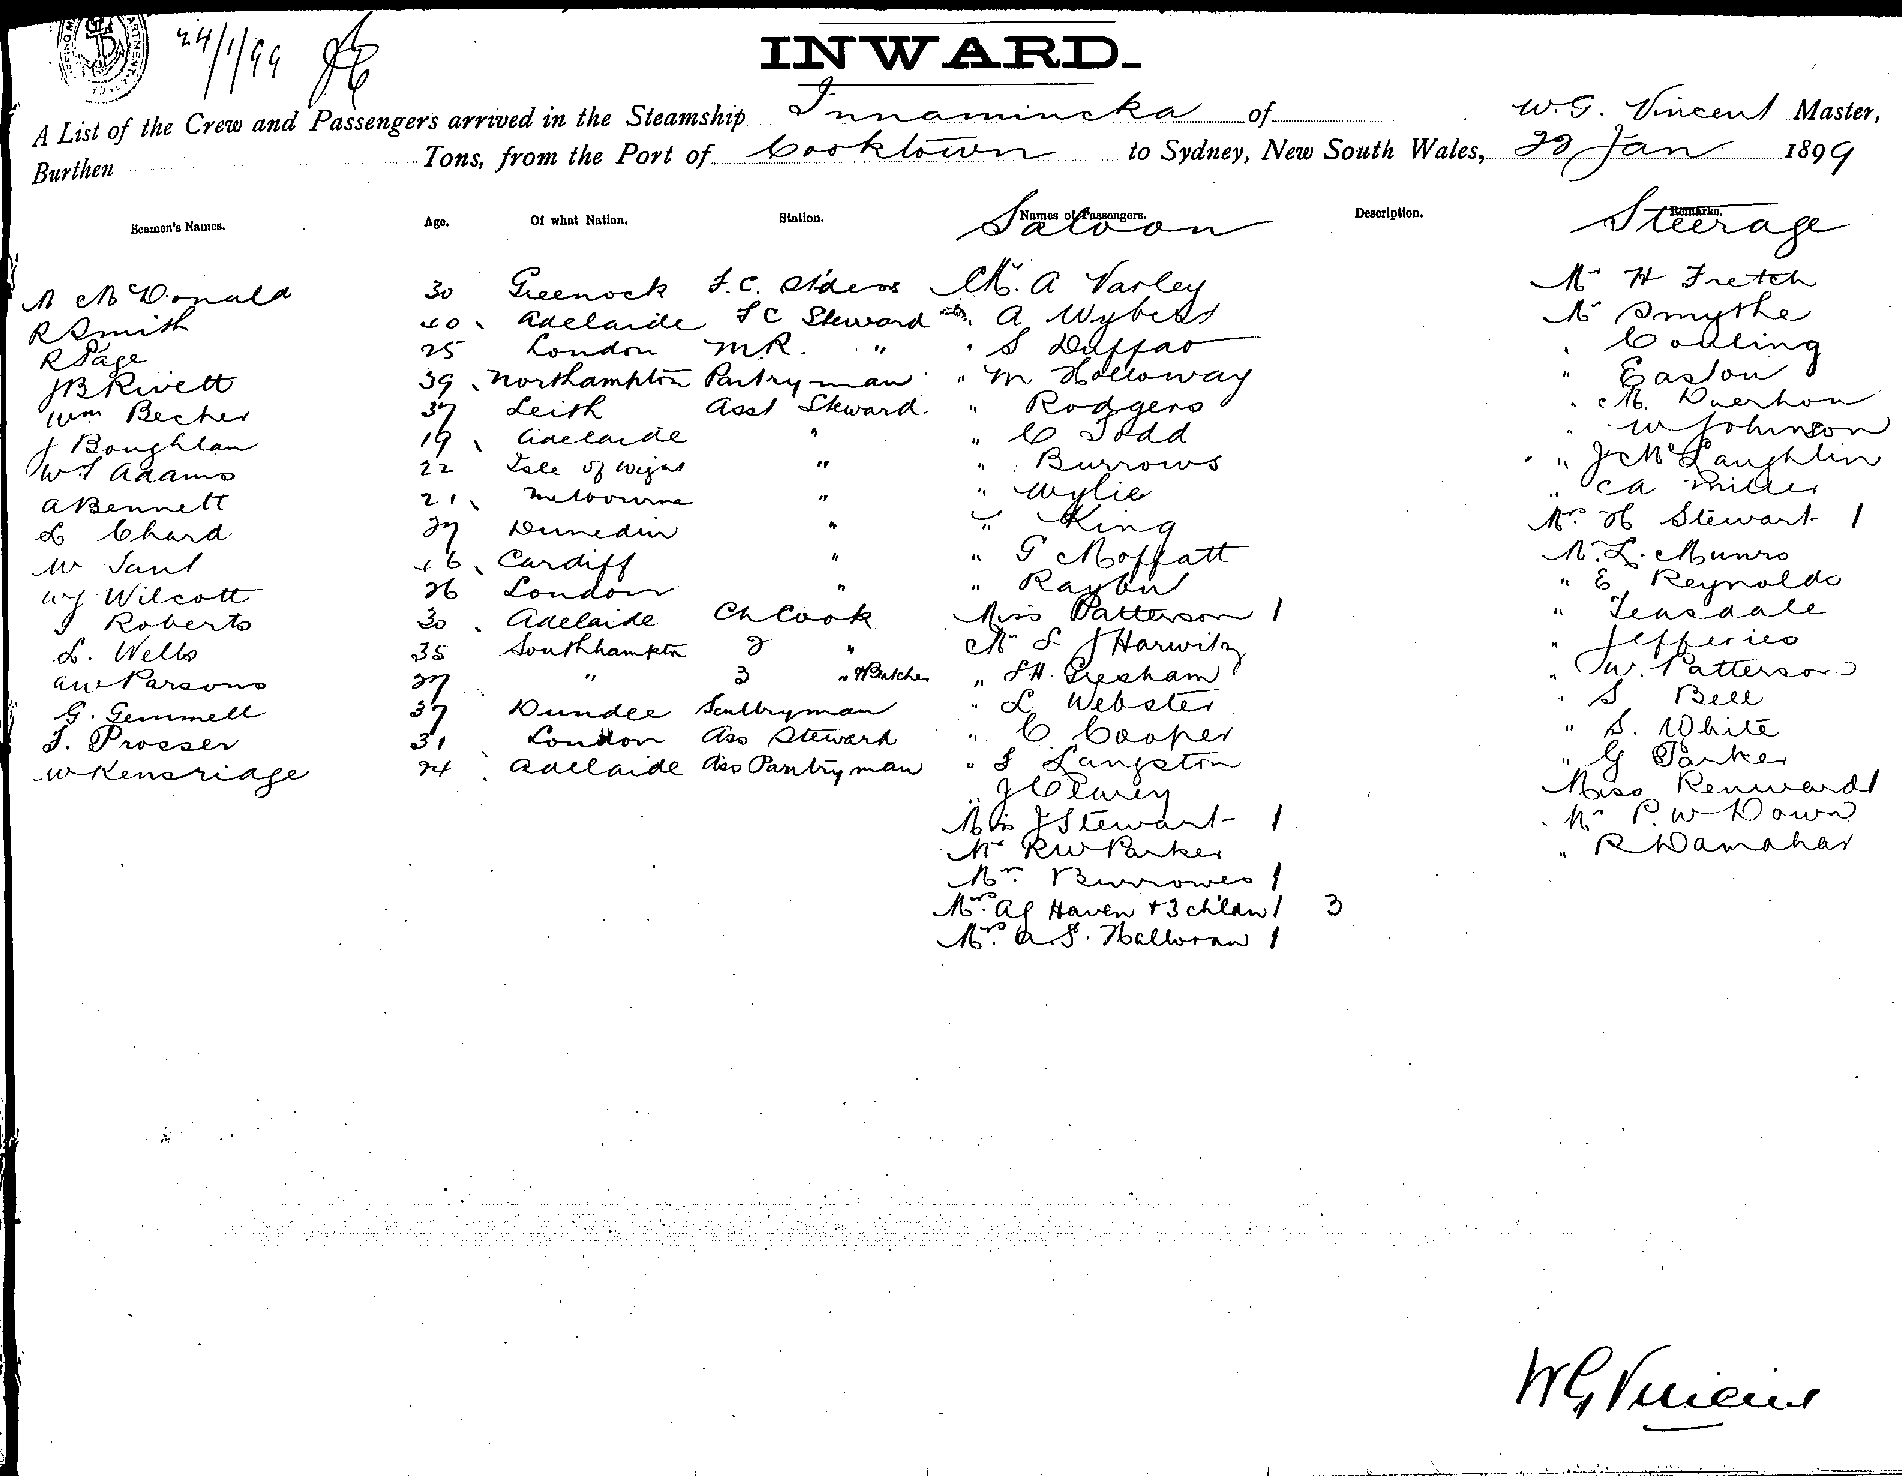 24/1/99
INWARD.
A List of the Crew and Passengers arrived in the Steamship Innamincka of W. G. Vincent Master,
Burthen Tons, from the Port of Cooktown to Sydney, New South Wales, 22 Jan 1899
Seamen's Names. Age. Of what Nation. Station. Names of Passengers. Saloon Description. Remarks. Steerage
M McDonald 30 Greenock F.C. Mr. A Varley Mr H Fretch
R Smith 40 Adelaide F C Steward A Wybert Mr Smythe
R Page 25 London M.R. " " S " Couling
J B Rivett 39 Northampton Pantryman " M Holloway " Easton
Wm Becher 37 Leith Asst Steward " Rodgers " M.
J Boughlan 19 Adelaide " " C Todd " W Johnson
W S Adams 22 Isle of Wight " " Burrows " J McLaughlin
A Bennett 21 Melbourne " " Wylie " C A Miller
L Chard 27 Dunedin " " King Mrs H Stewart 1
W 46 Cardiff " " G Moffatt Mr. L. Munro
W J Wilcott 26 London " " " E Reynolds
J Roberts 30 Adelaide Ch Cook Miss Patterson 1 " Teasdale
L. Wells 35 Southhampton 2 " Mr S. J Harwitz " Jefferies
A W Parsons 27 " 3 " & Butcher " F H. Gresham " W. Patterson
G. Gemmell 37 Dundee Scullryman " L Webster " S Bell
T. Prosser 31 London Ass Steward " C Cooper " S. White
W Kensridge 24 Adelaide Ass Pantryman " S Langston " G Parker
" J Miss Renward 1
Miss J Stewart 1 Mr P. W Down
Mr R W Parker " R Danahar
Mrs. Burrowes 1
Mrs. A J Haven & 3 childn 1 3
Mrs. A. S. Halloran 1
W G Vincent